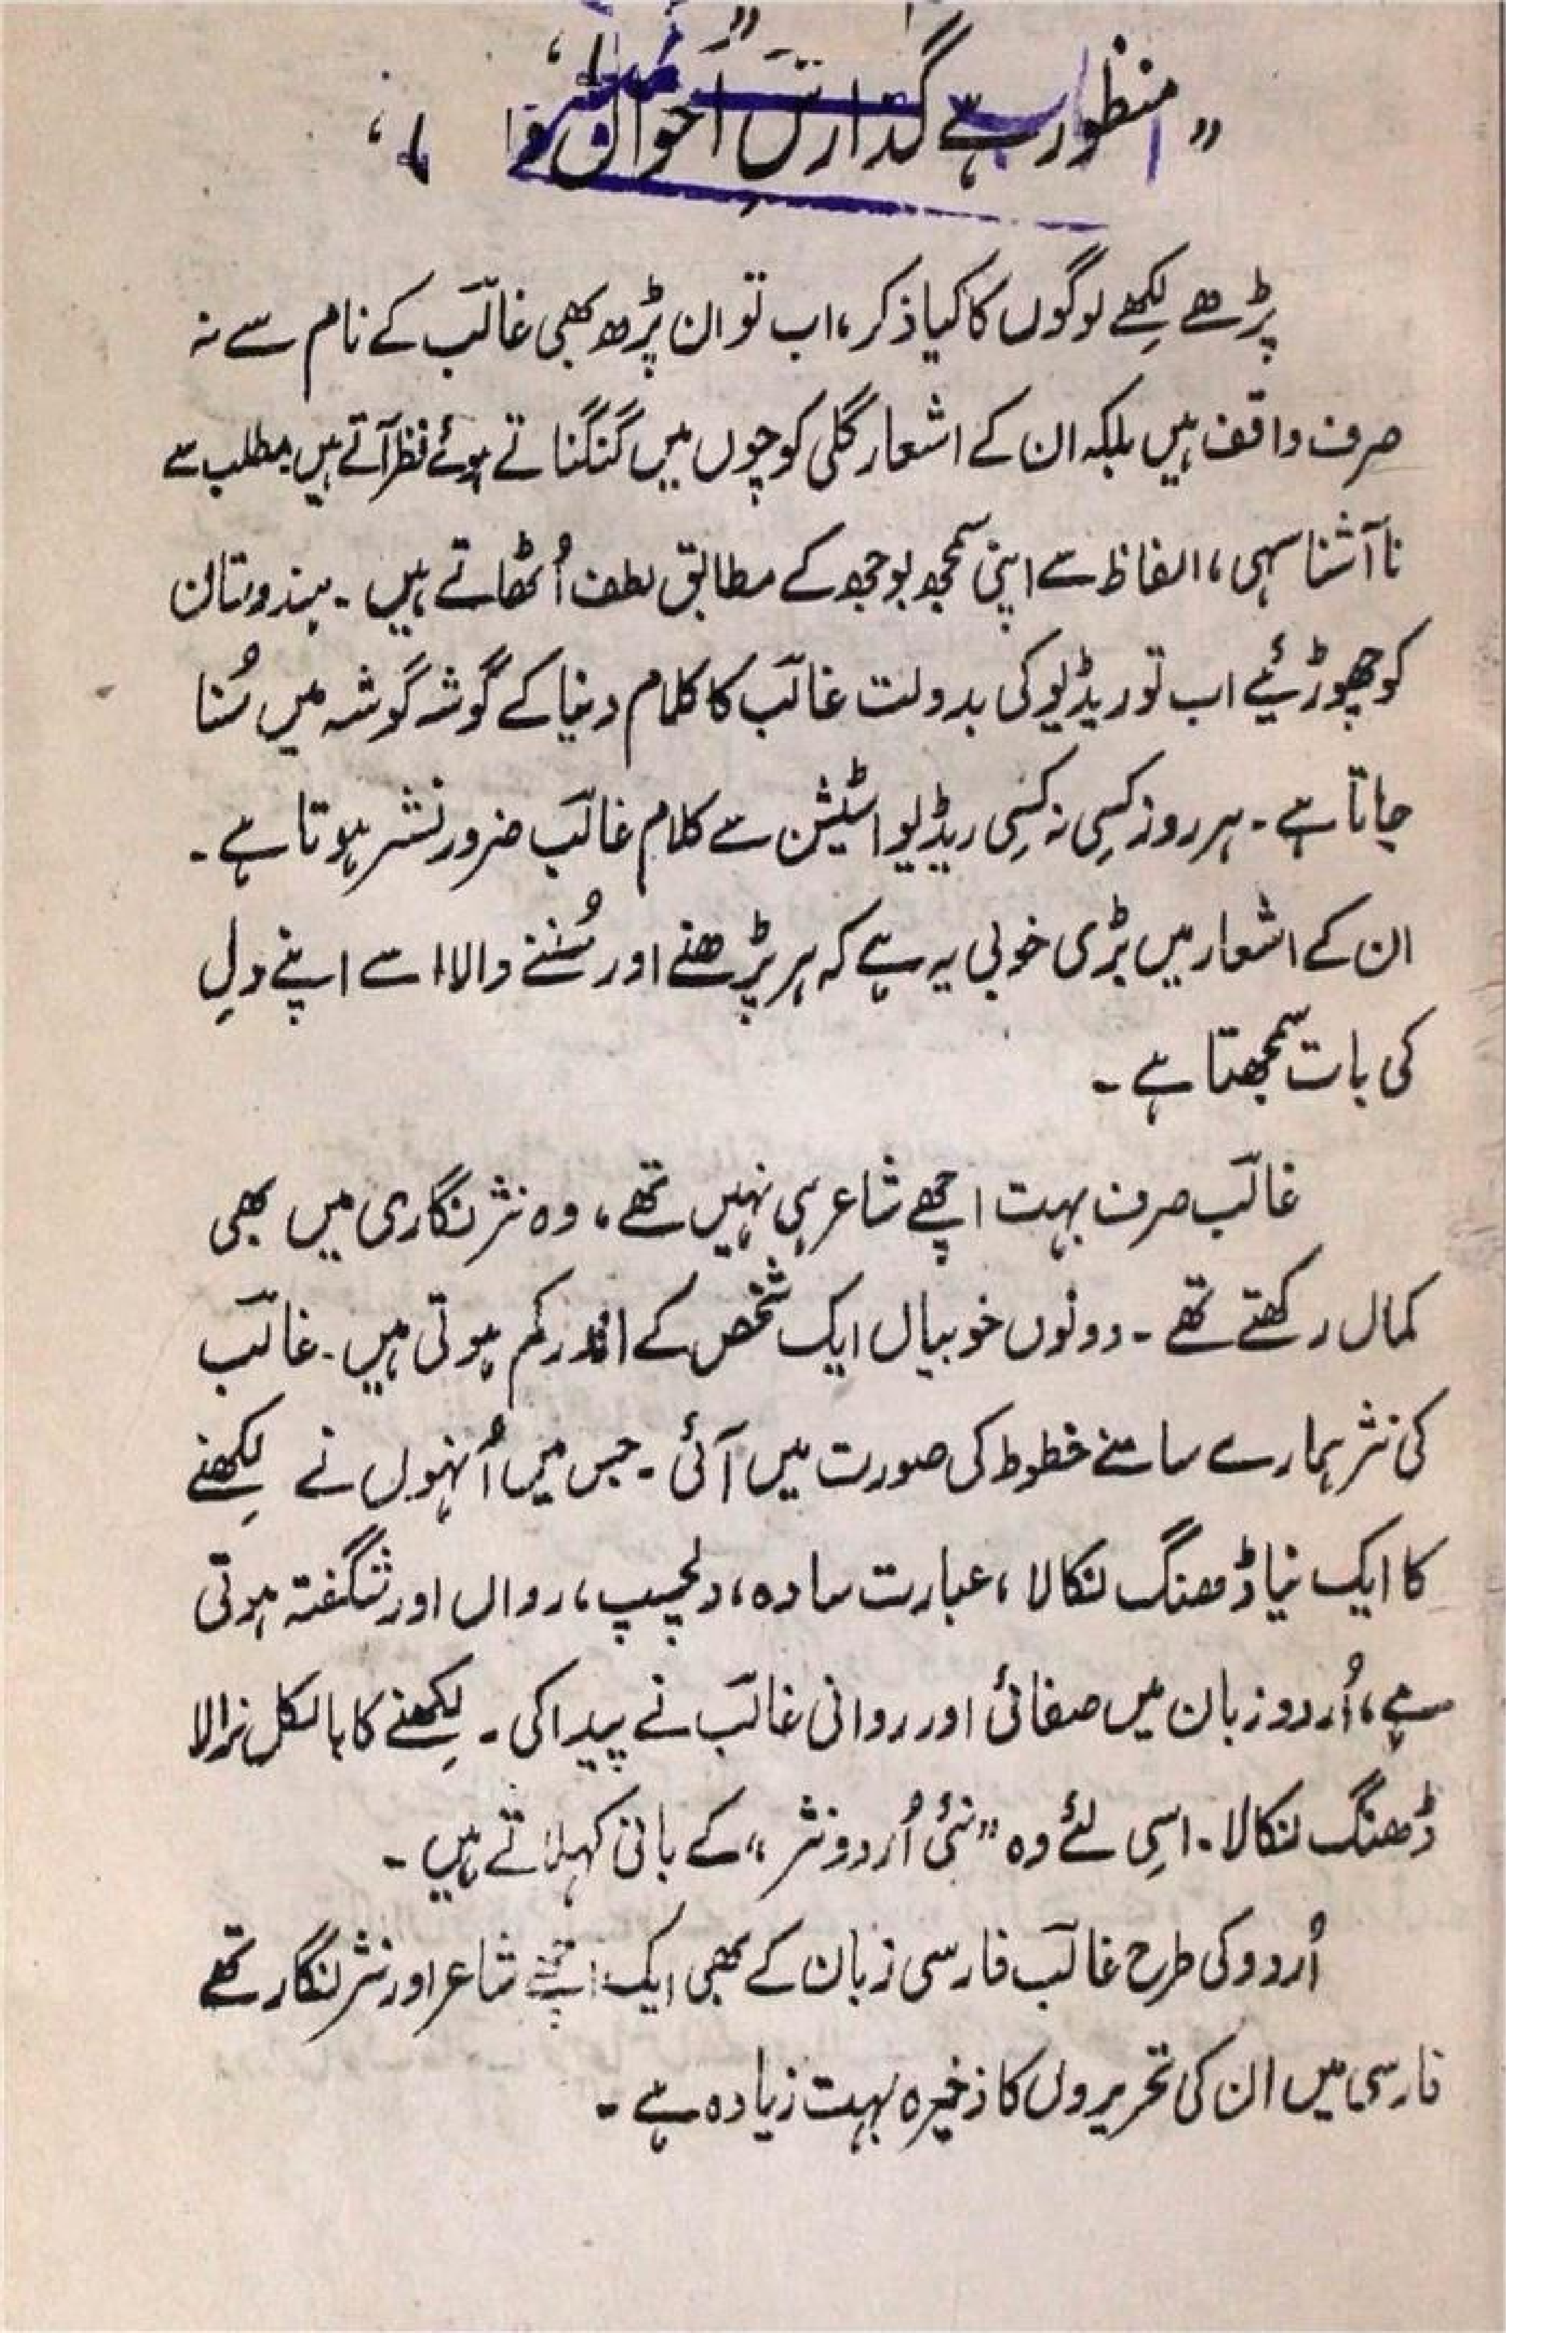 "منظور ہے گذارشِ احوالِ
پڑھے لکھے لوگوں کا کیا ذکر، اب تو ان پڑھ بھی غالبؔ کے نام سے نہ
صرف واقف ہیں بلکہ ان کے اشعار گلی کوچوں میں گنگناتے ہوئے نظر آتے ہیں۔ مطلب سے
نا آشنا سہی، الفاظ سے اپنی سمجھ بوجھ کے مطابق لطف اُٹھاتے ہیں۔ ہندوستان
کو چھوڑئیے اب تو ریڈیو کی بدولت غالبؔ کا کلام دنیا کے گوشہ گوشہ میں سُنا
جاتا ہے۔ ہر روز کسِی نہ کسِی ریڈیو اسٹیشن سے کلام غالبؔ ضرور نشر ہوتا ہے۔
ان کے اشعار میں بڑی خوبی یہ ہے کہ ہر پڑھنے اور سُننے والا اسے اپنے دِل
کی بات سمجھتا ہے۔
غالبؔ صرف بہت اچھے شاعر ہی نہیں تھے، وہ نثر نگاری میں بھی
کمال رکھتے تھے۔ دونوں خوبیاں ایک شخص کے اندر کم ہوتی ہیں۔ غالبؔ
کی نثر ہمارے سامنے خطوط کی صورت میں آئی۔ جس میں اُنہوں نے لِکھنے
کا ایک نیا ڈھنگ نکالا، عبارت سادہ، دلچسپ، رواں اور شگفتہ ہوتی
ہے، اُردو زبان میں صفائی اور روانی غالبؔ نے پیدا کی۔ لِکھنے کا بالکل نرالا
ڈھنگ نکالا۔ اسِی لئے وہ "نئی اُردو نثر" کے بانی کہلاتے ہیں۔
اُردو کی طرح غالبؔ فارسی زبان کے بھی ایک اچھے شاعر اور نثر نگار تھے
فارسی میں ان کی تحریروں کا ذخیرہ بہت زیادہ ہے۔